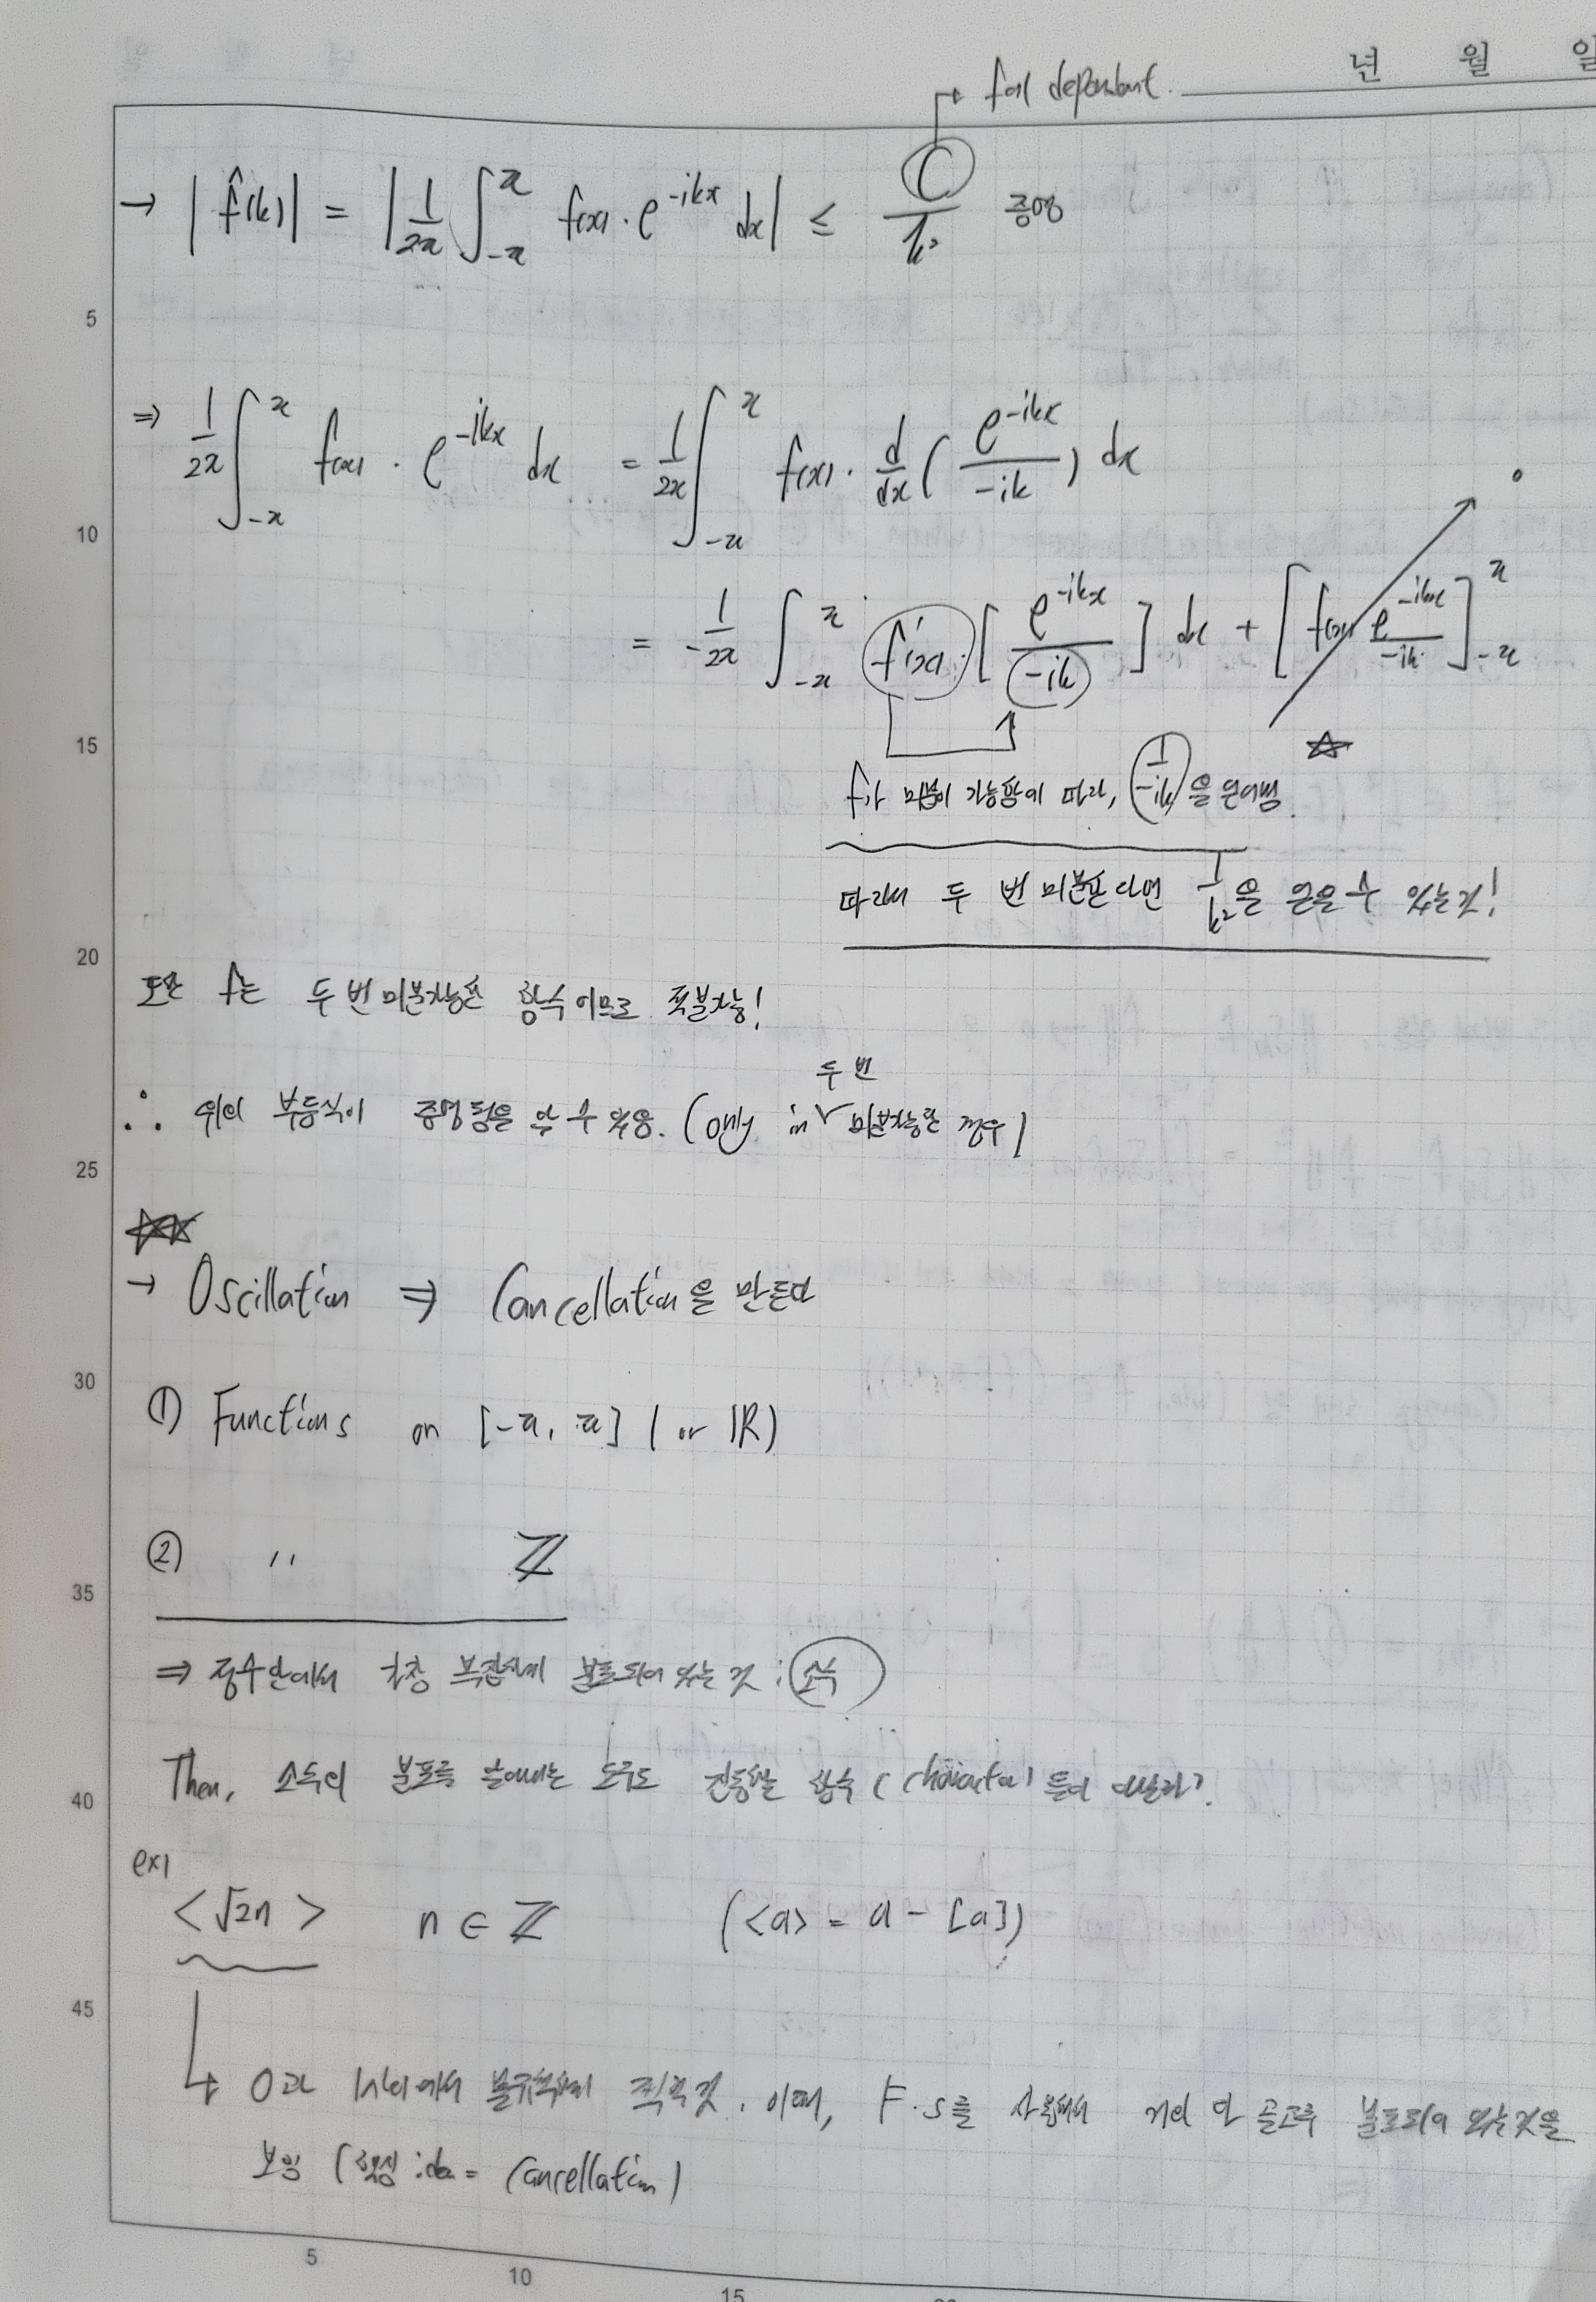 년 월 일
→ f에 dependent.
→ | f̂(k) | = | 1/2π ∫_{-π}^{π} f(x) · e^{-ikx} dx | ≤ C/k² 증명
5
⇒ 1/2π ∫_{-π}^{π} f(x) · e^{-ikx} dx = 1/2π ∫_{-π}^{π} f(x) · d/dx ( e^{-ikx}/-ik ) dx
10
0
= -1/2π ∫_{-π}^{π} f'(x) · [ e^{-ikx}/-ik ] dx + [ f(x) e^{-ikx}/-ik ]_{-π}^{π}
15
☆
f가 미분이 가능함에 따라, 1/-ik 을 얻어냄.
따라서 두 번 미분한다면 1/k²을 얻을 수 있는 것!
20
또한 f는 두 번 미분가능한 함수 이므로 적분가능!
두 번
∴ 위의 부등식이 증명됨을 알 수 있음. (only in ∨ 미분가능한 경우)
25
☆☆
→ Oscillation ⇒ Cancellation을 만든다
30
① Functions on [-π, π] ( or ℝ)
② 〃 ℤ
35
⇒ 정수 안에서 가장 복잡하게 분포되어 있는 것 : 소수
Then, 소수의 분포를 알아내는 도구도 진동하는 함수 (character) 들이 아닐까?
40
ex)
<√2n> n ∈ ℤ (<a> = a - [a])
45
↳ 0과 1사이에서 불규칙하게 찍힐 것. 이때, F.S를 사용해서 거의 다 골고루 분포되어 있는 것을
보임 (핵심 idea = Cancellation)
5
10
15